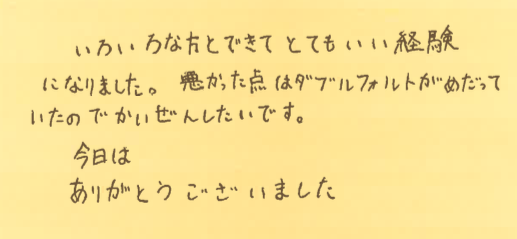 いろいろな方とできてとてもいい経験
になりました。悪かった点はダブルフォルトがめだって
いたのでかいぜんしたいです。
今日は
ありがとうございました